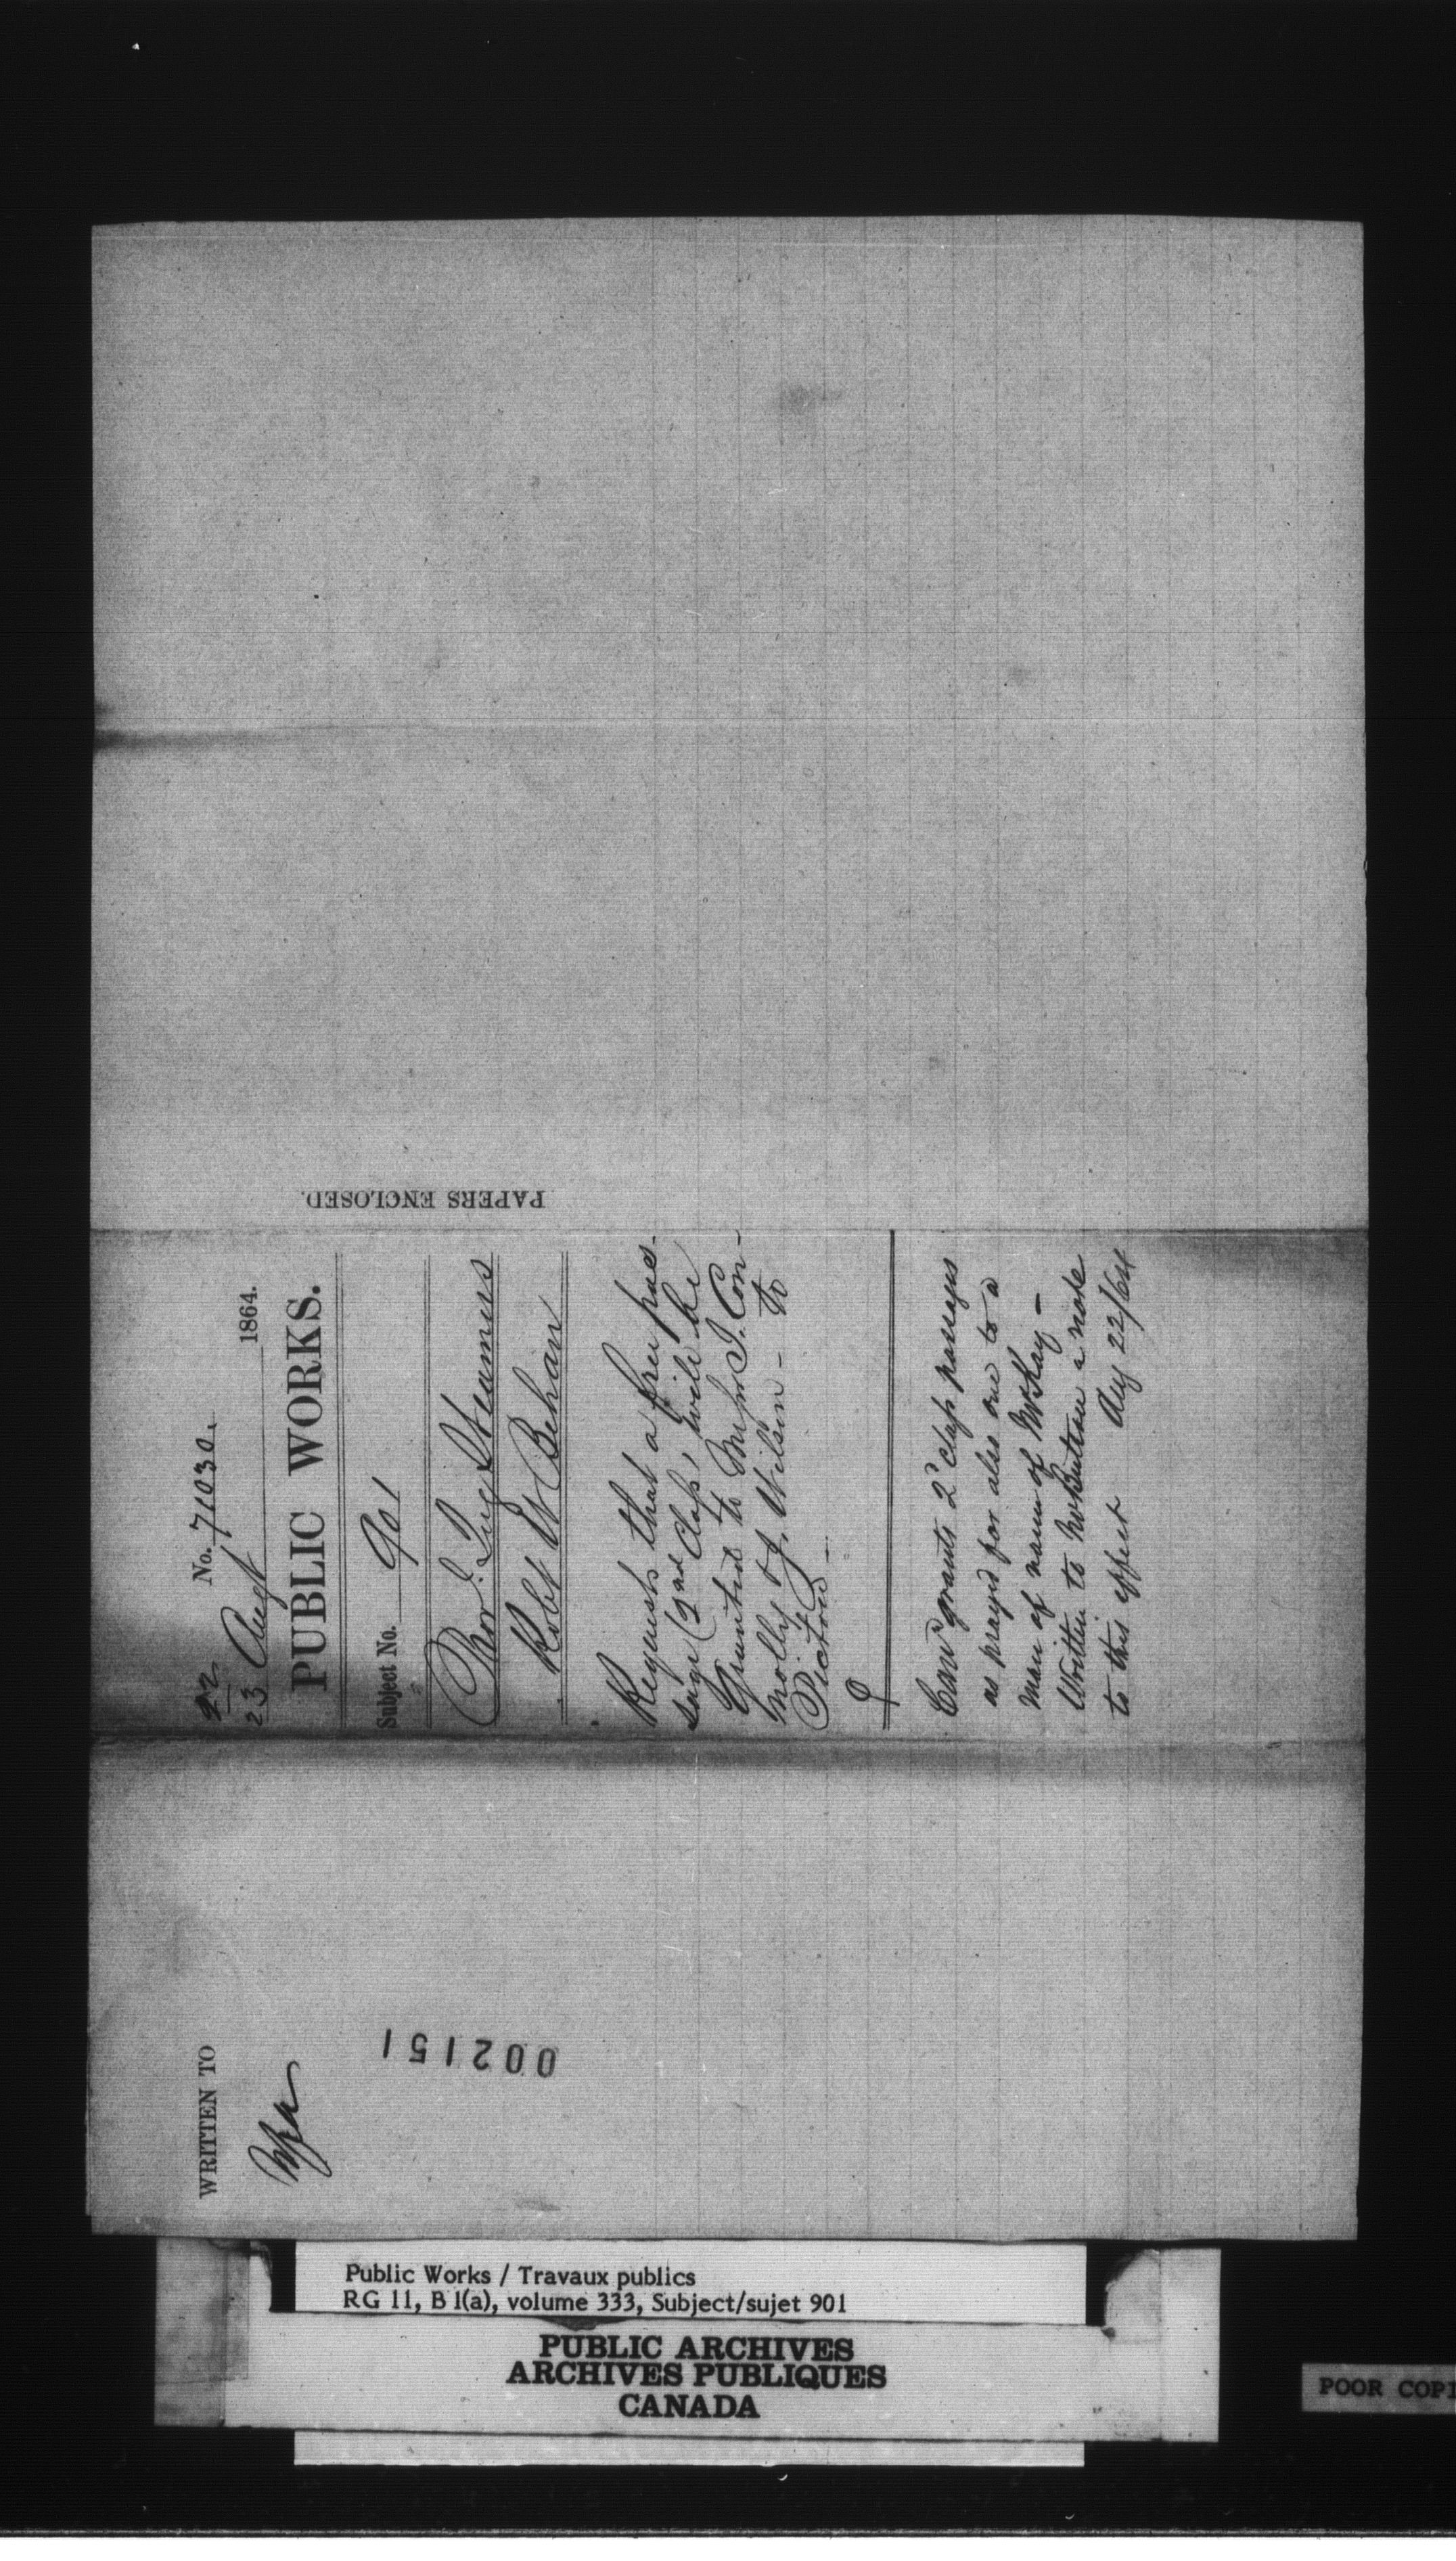 No. 71030.
22
23 Augt 1864.
PUBLIC WORKS.
Subject No. 901
Prov.l Tug Steamers
Robt W Behan
Requests that a free pas-
sage (2nd Class) will be
Granted to Messrs J. Con-
nolly & J. Wilson - to
Pictou -
Comr grants 2d class passages
as prayed for also one to a
man of name of McKay -
Written to Mr Buteau a note
to this effect Aug 22/64
PAPERS ENCLOSED.
WRITTEN TO
002151
Public Works / Travaux publics
RG 11, B 1(a), volume 333, Subject/sujet 901
PUBLIC ARCHIVES
ARCHIVES PUBLIQUES
CANADA
POOR COPI